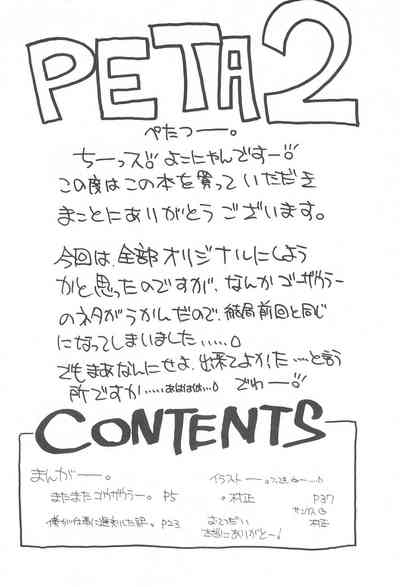 PETA2
ぺたつー。
ちーっス!! よこにゃんですー!!
この度はこの本を買っていただき
まことにありがとうございます。
今回は、全部オリジナルにしよう
かと思ったのですが、なんかゴーザウラー
のネタがうかんだので、結局前回と同じ
になってしまいました……
でもまあなんにせよ、出来てよかった…と言う
所ですか……あははは… でわー!!
CONTENTS
まんがー。
またまたゴウザウラー。 P5
僕が仕事に遅刻した訳。 P23
イラストー
・村正 P37
おてつだい サンクス
本当にありがと〜! 村正